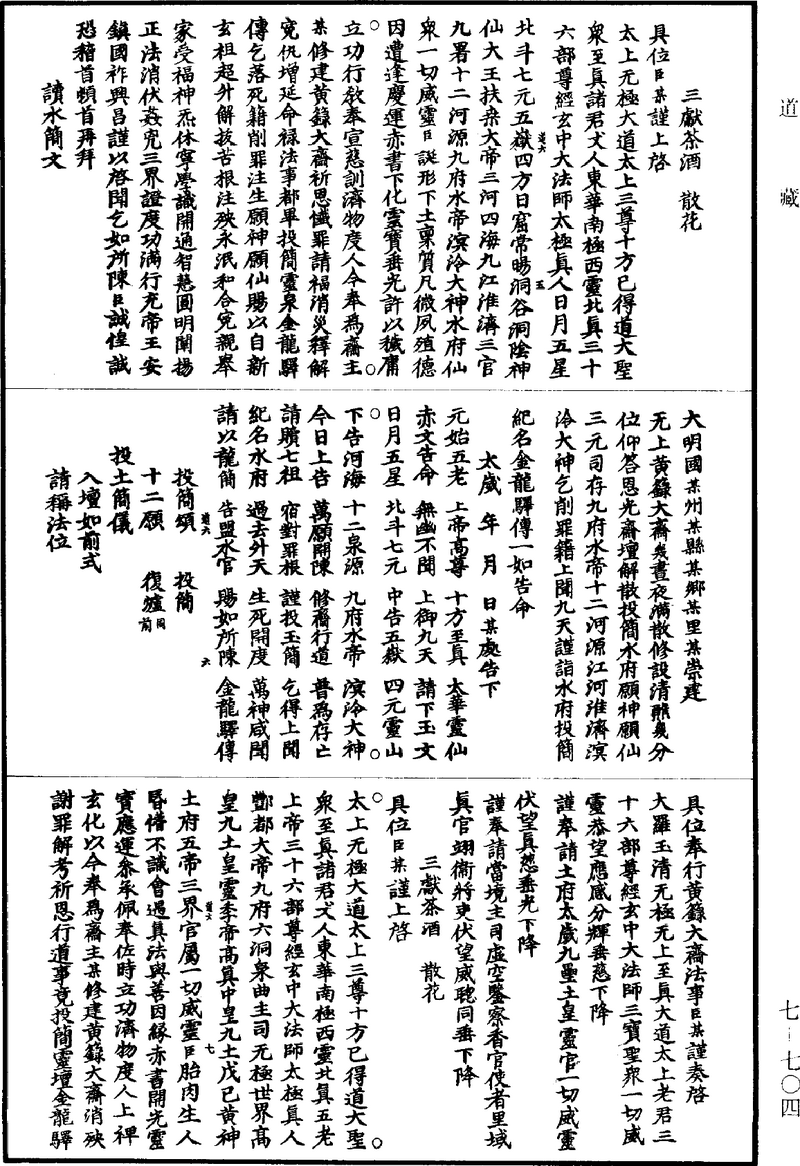 道藏
三獻茶酒 散花
具位臣某謹上啓
太上无極大道太上三尊十方已得道大聖
衆至真諸君丈人東華南極西靈北真三十
六部尊經玄中大法師太極真人日月五星
北斗七元五嶽四方日窟常暘洞谷洞陰神
仙大王扶桑大帝三河四海九江淮濟三官
九署十二河源九府水帝溟泠大神水府仙
衆一切威靈臣誕形下土稟質凡微夙殖德
因遭逢慶運赤書下化靈寶垂光許以穢庸
立功行教奉宣慈訓濟物度人今奉爲齋主
某修建黃籙大齋祈恩懺罪請福消災釋解
冤仇增延命祿法事都畢投簡靈泉金龍驛
傳乞落死籍削罪注生願神願仙賜以自新
玄祖超升解拔苦根注殃永泯和合冤親舉
家受福神炁休寧學識開通智慧圓明闡揚
正法消伏姦宄三界證度功滿行充帝王安
鎮國祚興昌謹以啓聞乞如所陳臣誠惶誠
恐稽首頓首再拜
讀水簡文
大明國某州某縣某鄉某里某崇建
无上黃籙大齋幾晝夜滿散修設清醮幾分
位仰答恩光齋壇解散投簡水府願神願仙
三元司存九府水帝十二河源江河淮濟溟
泠大神乞削罪籍上聞九天謹詣水府投簡
紀名金龍驛傳一如告命
太歲 年 月 日某處告下
元始五老 上帝高尊 十方至真 太華靈仙
赤文告命 無幽不聞 上御九天 請下玉文
日月五星 北斗七元 中告五嶽 四元靈山
下告河海 十二泉源 九府水帝 溟泠大神
今日上告 萬願開陳 修齋行道 普爲存亡
請贖七祖 宿對罪根 謹投玉簡 乞得上聞
紀名水府 過去升天 生死開度 萬神咸聞
請以龍簡 告盟水官 賜如所陳 金龍驛傳
投簡頌 投簡
十二願 復爐同前
投土簡儀
入壇如前式
請稱法位
具位奉行黃籙大齋法事臣某謹奏啓
大羅玉清无極无上至真大道太上老君三
十六部尊經玄中大法師三寶聖衆一切威
靈恭望應感分輝垂慈下降
謹奉請土府太歲九壘土皇靈官一切威靈
伏望真慈垂光下降
謹奉請當境主司虛空鑒察香官使者里域
真官翊衞將吏伏望威聰同垂下降
三獻茶酒 散花
具位臣某謹上啓
太上无極大道太上三尊十方已得道大聖
衆至真諸君丈人東華南極西靈北真五老
上帝三十六部尊經玄中大法師太極真人
酆都大帝九府六洞衆曲主司无極世界高
皇九土皇靈季帝高真中皇九土戊己黃神
土府五帝三界官屬一切威靈臣胎肉生人
昏惛不識會遇真法與善因緣赤書開光靈
寶應運忝承佩奉佐時立功濟物度人上裨
玄化以今奉爲齋主某修建黃籙大齋消殃
謝罪解考祈恩行道事竟投簡靈壇金龍驛
七-七〇四